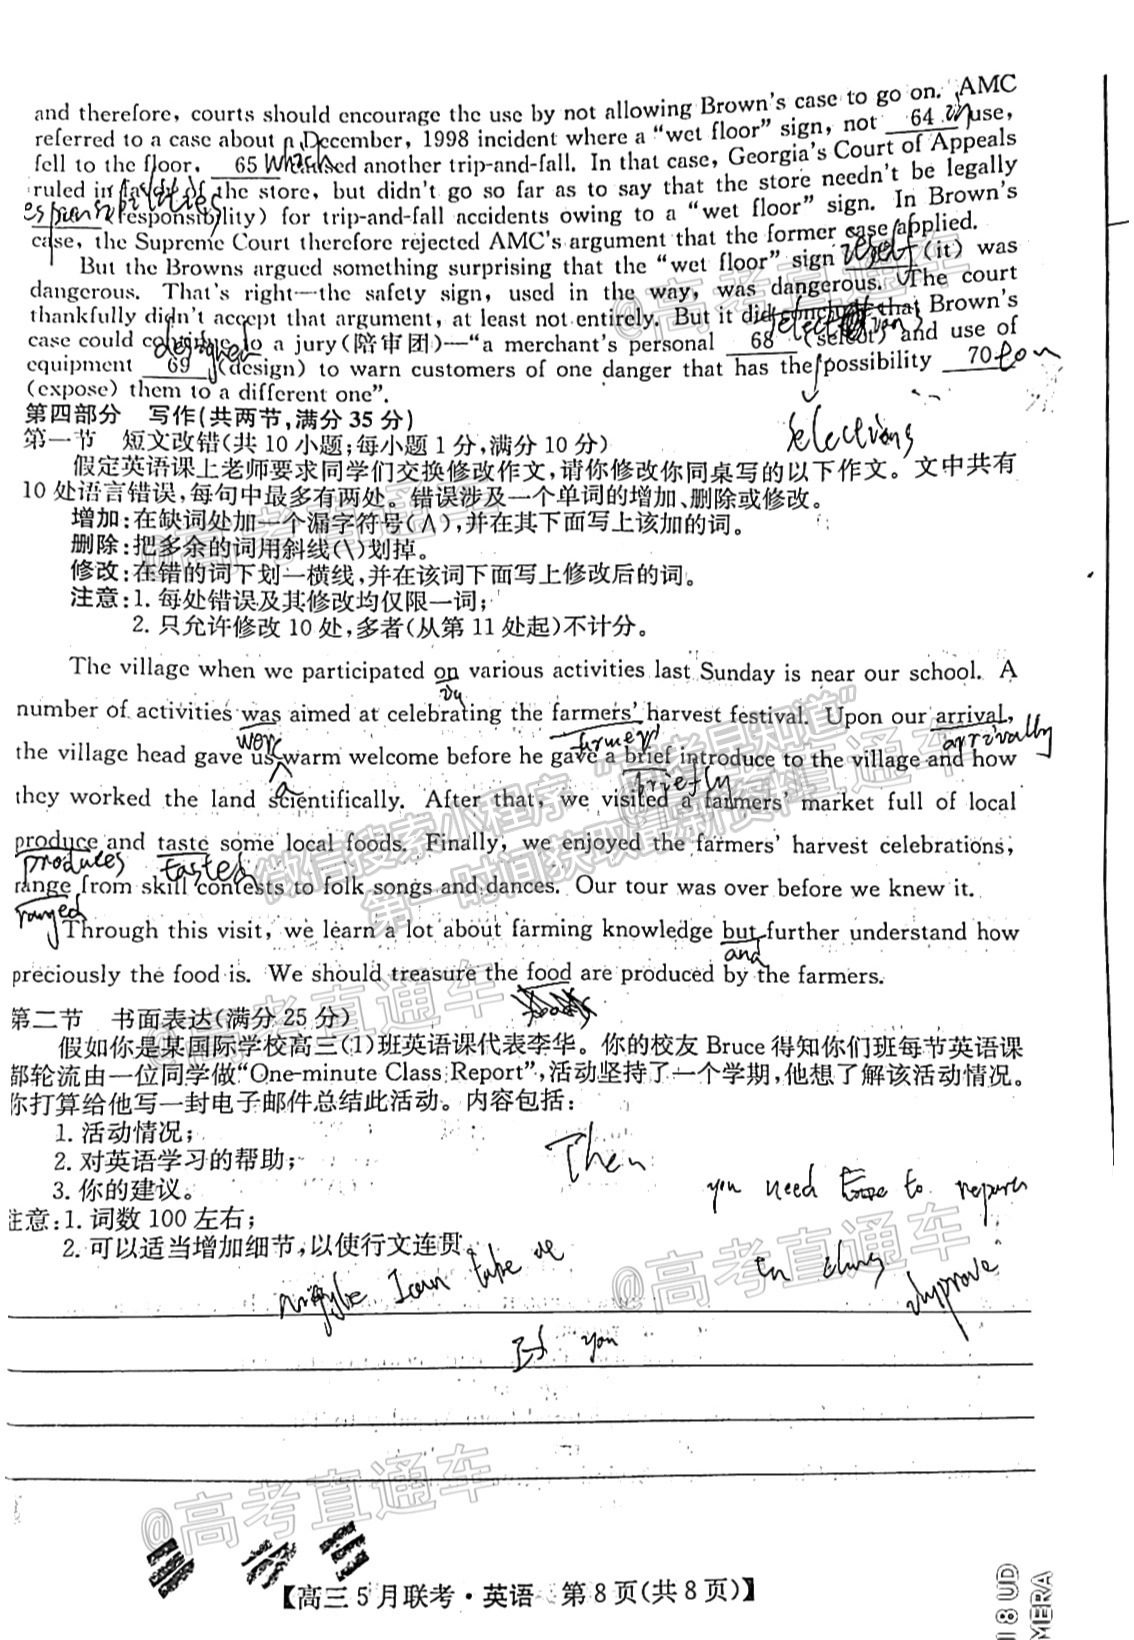 and therefore, courts should encourage the use by not allowing Brown's case to go on. AMC
referred to a case about a December, 1998 incident where a "wet floor" sign, not 64 in use,
fell to the floor, 65 which caused another trip-and-fall. In that case, Georgia's Court of Appeals
ruled in of the store, but didn't go so far as to say that the store needn't be legally
(responsibility) for trip-and-fall accidents owing to a "wet floor" sign. In Brown's
case, the Supreme Court therefore rejected AMC's argument that the former case applied.
But the Browns argued something surprising that the "wet floor" sign itself (it) was
dangerous. That's right—the safety sign, used in the way, was dangerous. The court
thankfully didn't accept that argument, at least not entirely. But it did conclude that Brown's
case could continue to a jury(陪审团)—"a merchant's personal 68 (select) and use of
designed
equipment 69 (design) to warn customers of one danger that has the possibility 70 to
(expose) them to a different one".
selections
第四部分 写作(共两节,满分35分)
第一节 短文改错(共10小题;每小题1分,满分10分)
假定英语课上老师要求同学们交换修改作文,请你修改你同桌写的以下作文。文中共有
10处语言错误,每句中最多有两处。错误涉及一个单词的增加、删除或修改。
增加:在缺词处加一个漏字符号(∧),并在其下面写上该加的词。
删除:把多余的词用斜线(\)划掉。
修改:在错的词下划一横线,并在该词下面写上修改后的词。
注意:1. 每处错误及其修改均仅限一词;
2. 只允许修改10处,多者(从第11处起)不计分。
The village when we participated on various activities last Sunday is near our school. A
number of activities was aimed at celebrating the farmers' harvest festival. Upon our arrival,
were farmer arrivally
the village head gave us warm welcome before he gave a brief introduce to the village and how
a briefly
they worked the land scientifically. After that, we visited a farmers' market full of local
produce and taste some local foods. Finally, we enjoyed the farmers' harvest celebrations,
produces tasted
range from skill contests to folk songs and dances. Our tour was over before we knew it.
ranged
Through this visit, we learn a lot about farming knowledge but further understand how
and
preciously the food is. We should treasure the food are produced by the farmers.
第二节 书面表达(满分25分)
假如你是某国际学校高三(1)班英语课代表李华。你的校友Bruce得知你们班每节英语课
都轮流由一位同学做"One-minute Class Report",活动坚持了一个学期,他想了解该活动情况。
你打算给他写一封电子邮件总结此活动。内容包括:
1. 活动情况;
2. 对英语学习的帮助;
Then
3. 你的建议。
you need to
注意:1. 词数100左右;
2. 可以适当增加细节,以使行文连贯。
maybe I can take
improve
you
【高三5月联考·英语 第8页(共8页)】
@高考直通车
@高考直通车
微信搜索小程序"高考早知道"
第一时间获取最新资料
@高考直通车
@高考直通车
@高考直通车
@高考直通车